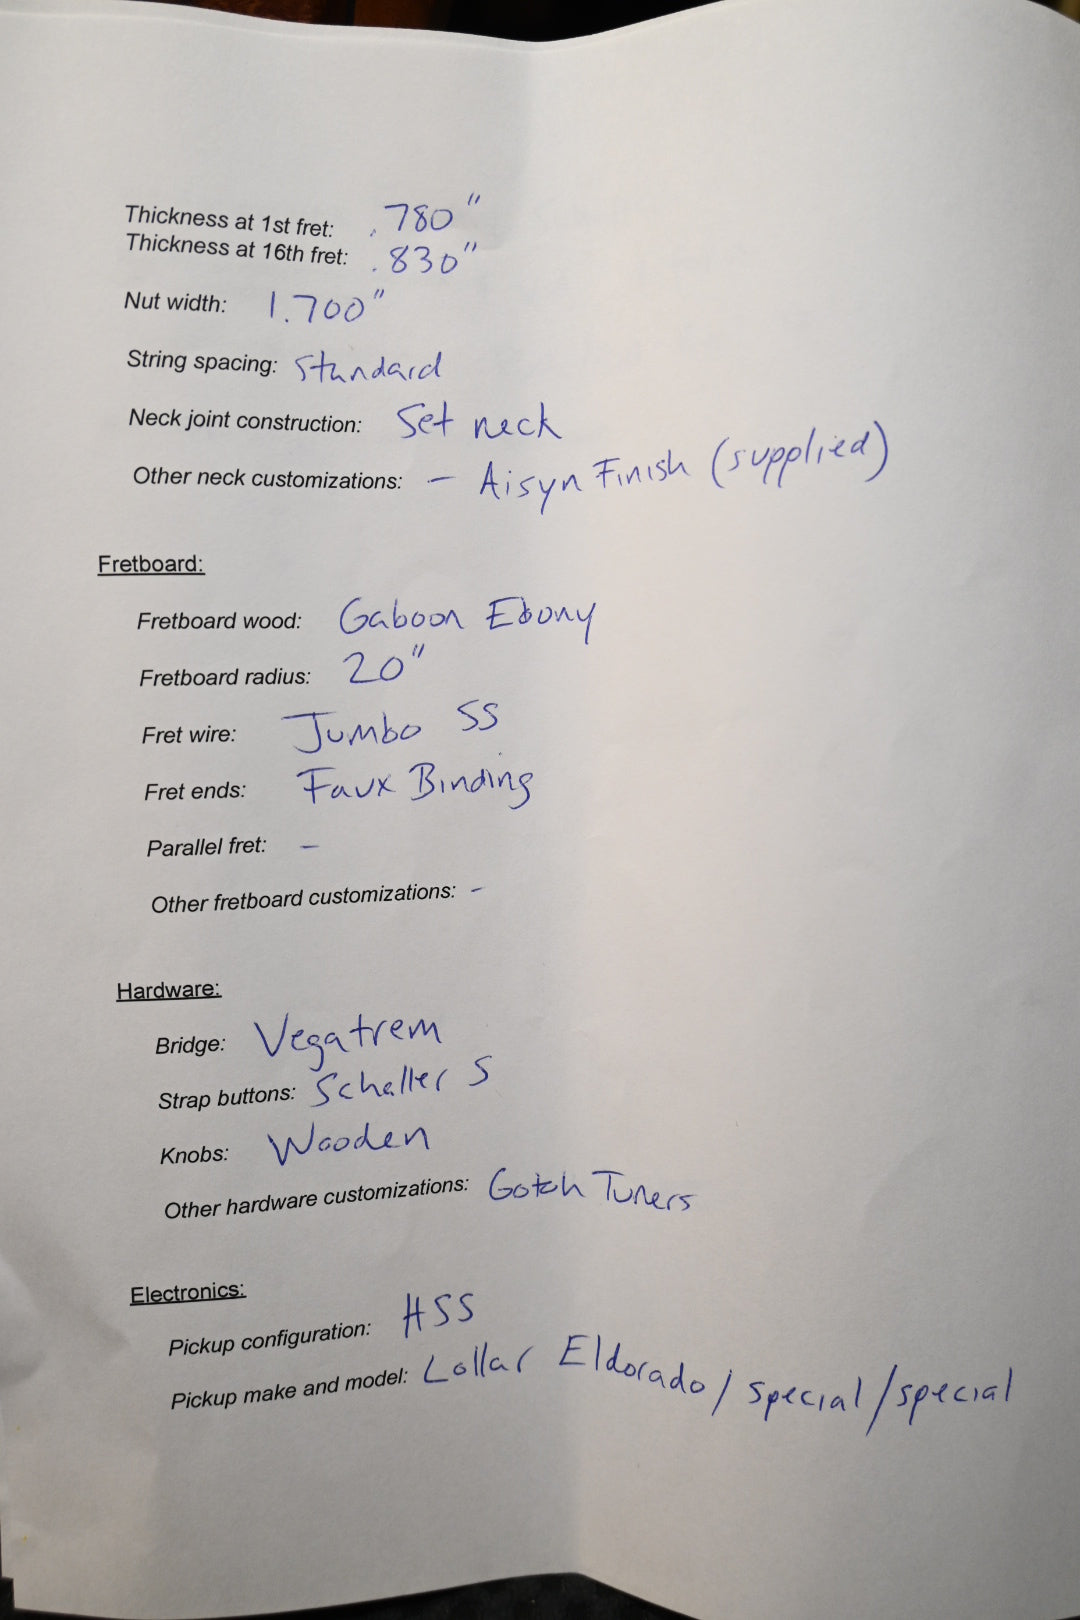 Thickness at 1st fret: .780"
Thickness at 16th fret: .830"
Nut width: 1.700"
String spacing: Standard
Neck joint construction: Set neck
Other neck customizations: - Aisyn Finish (supplied)
Fretboard:
Fretboard wood: Gaboon Ebony
Fretboard radius: 20"
Fret wire: Jumbo SS
Fret ends: Faux Binding
Parallel fret: -
Other fretboard customizations: -
Hardware:
Bridge: Vegatrem
Strap buttons: Schaller S
Knobs: Wooden
Other hardware customizations: Gotoh Tuners
Electronics:
Pickup configuration: HSS
Pickup make and model: Lollar Eldorado/special/special